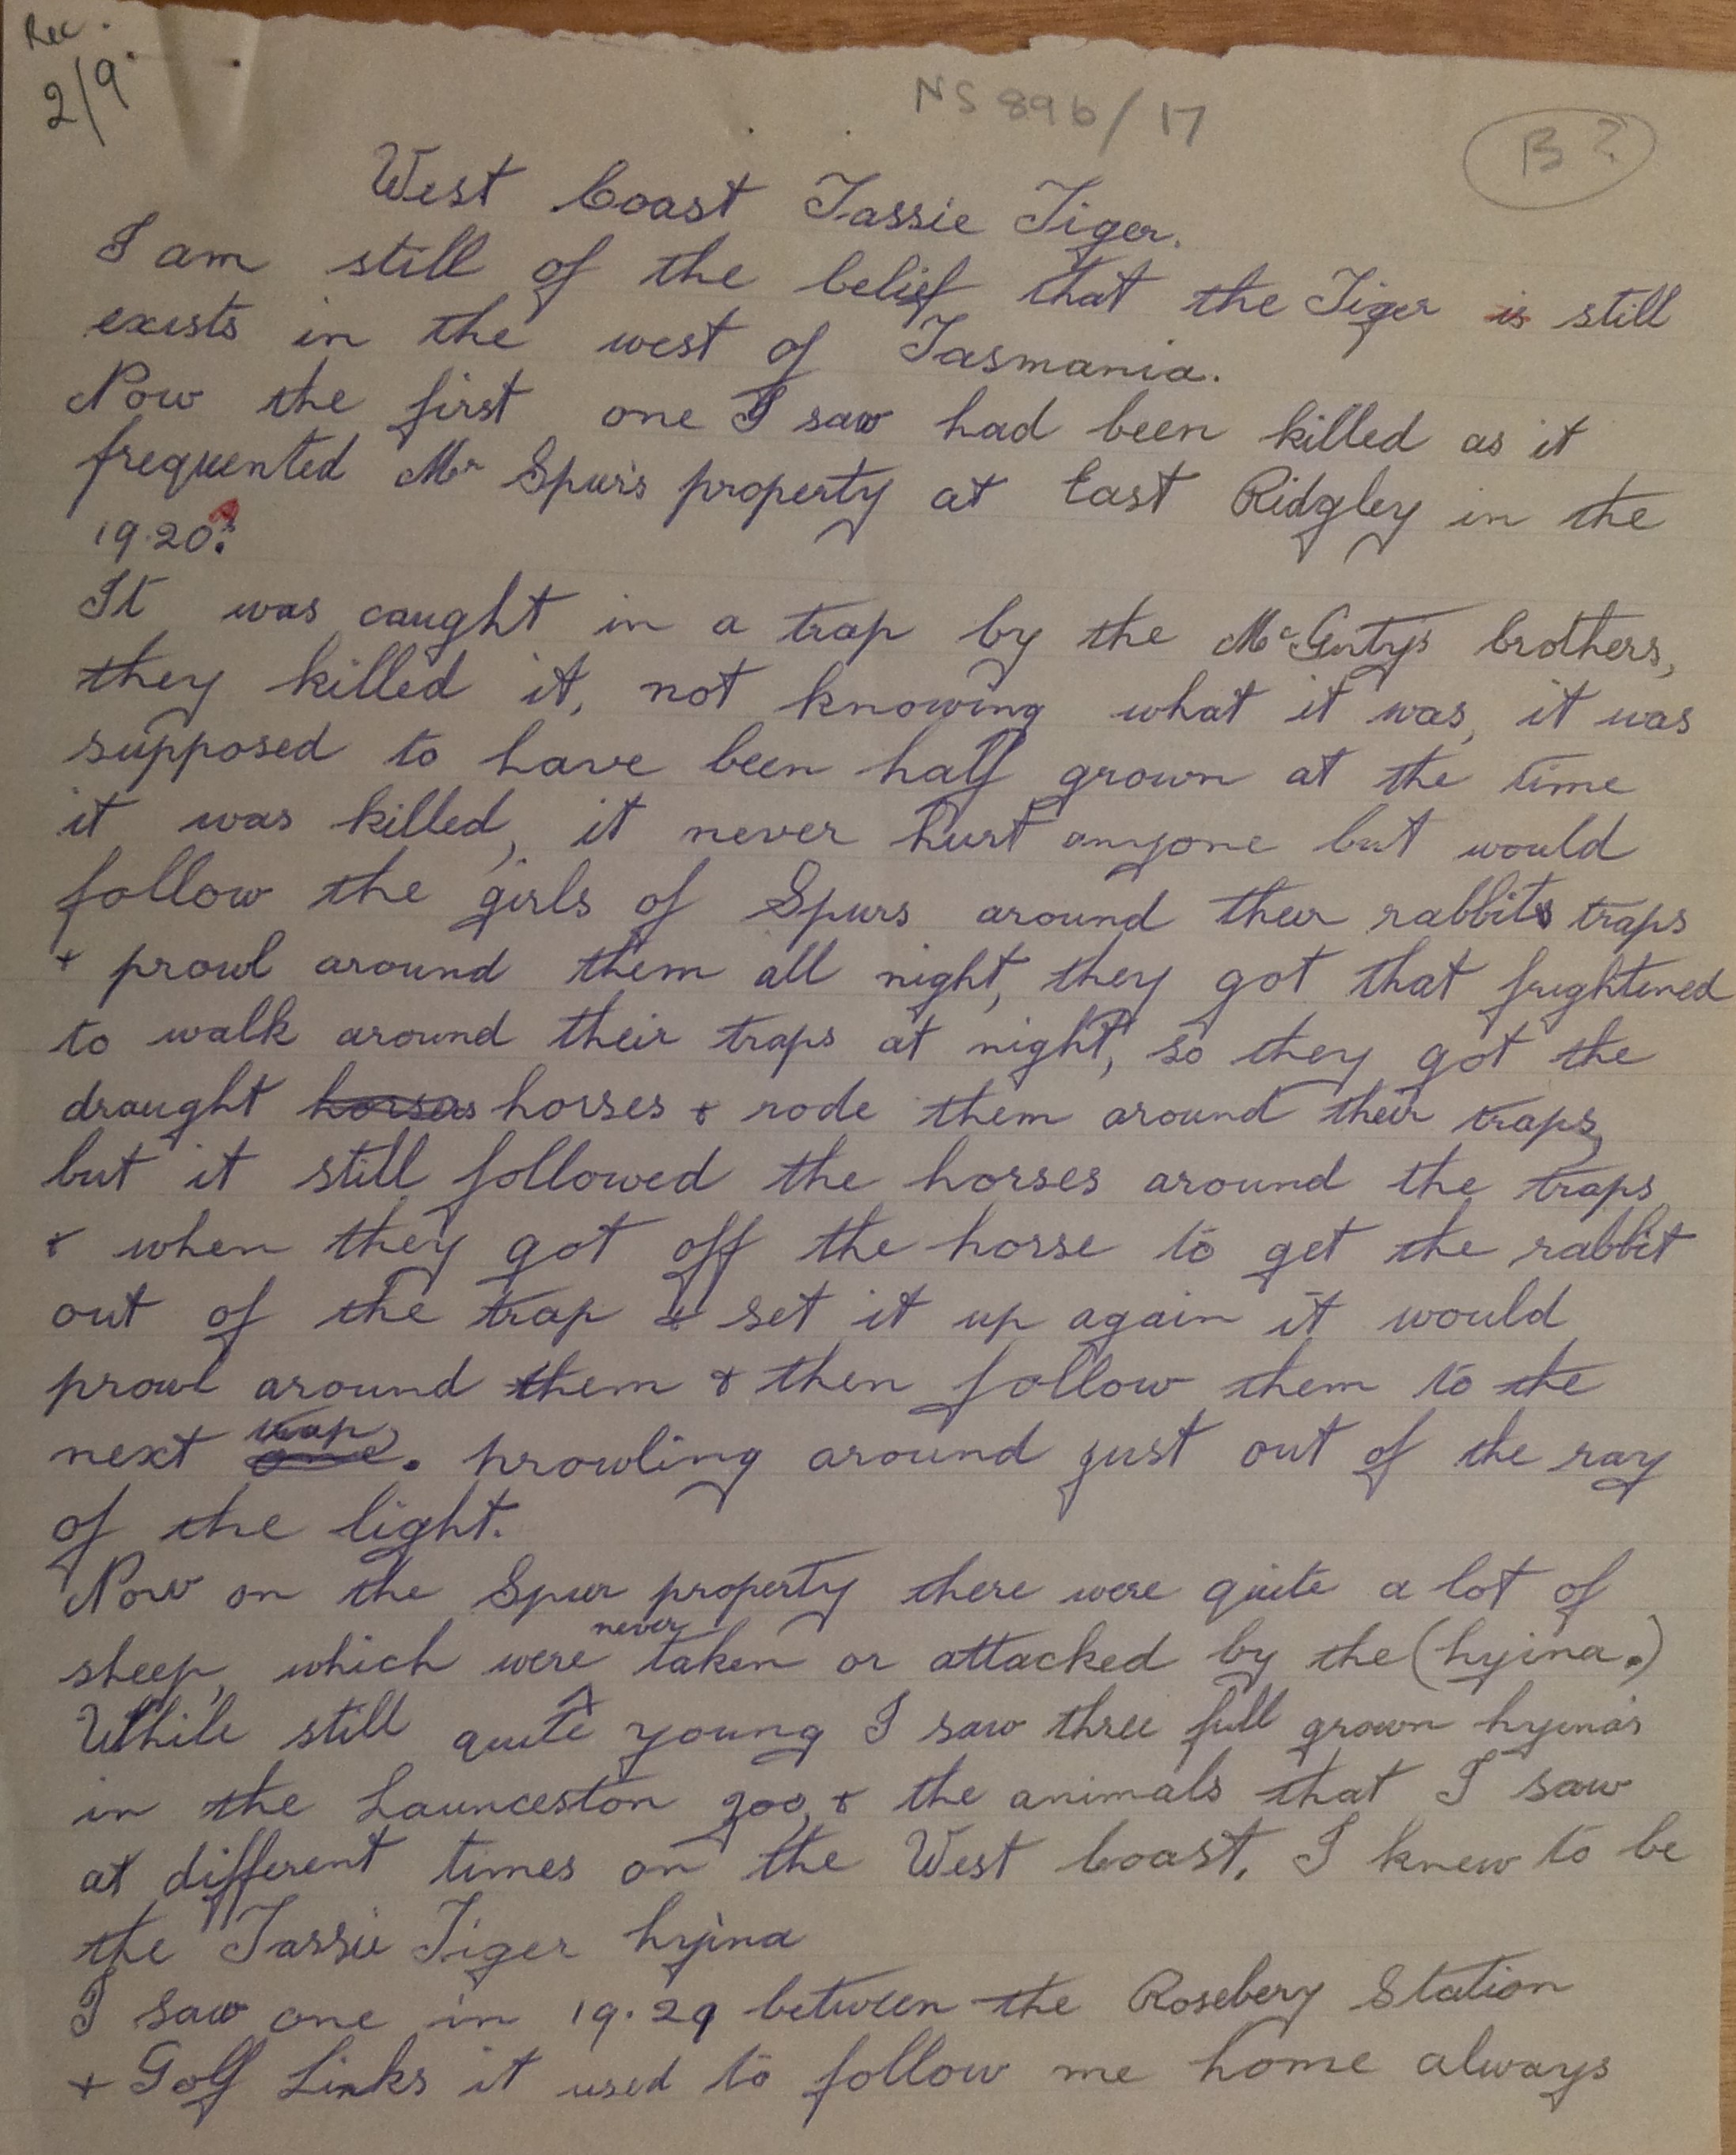 Rec.
2/9.
NS 896/17
B?
West Coast Tassie Tiger.
I am still of the belief that the Tiger is still
exists in the west of Tasmania.
Now the first one I saw had been killed as it
frequented Mr Spurs property at East Ridgley in the
19.20s.
It was caught in a trap by the McGinty's brothers,
they killed it, not knowing what it was, it was
supposed to have been half grown at the time
it was killed, it never hurt anyone but would
follow the girls of Spurs around their rabbits traps
+ prowl around them all night, they got that frightened
to walk around their traps at night, so they got the
draught horses horses + rode them around their traps,
but it still followed the horses around the traps,
+ when they got off the horse to get the rabbit
out of the trap + set it up again it would
prowl around them + then follow them to the
next one trap. prowling around just out of the ray
of the light.
Now on the Spur property there were quite a lot of
sheep, which were never taken or attacked by the (hyina.)
While still quite young I saw three full grown hyina's
in the Launceston zoo, + the animals that I saw
at different times on the West Coast, I knew to be
the Tassie Tiger hyina
I saw one in 19.29 between the Rosebery Station
+ Golf Links it used to follow me home always